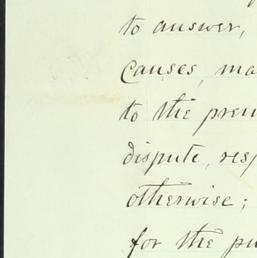 to answer,
causes, ma
to the prem
dispute, resp
otherwise;
for the pu